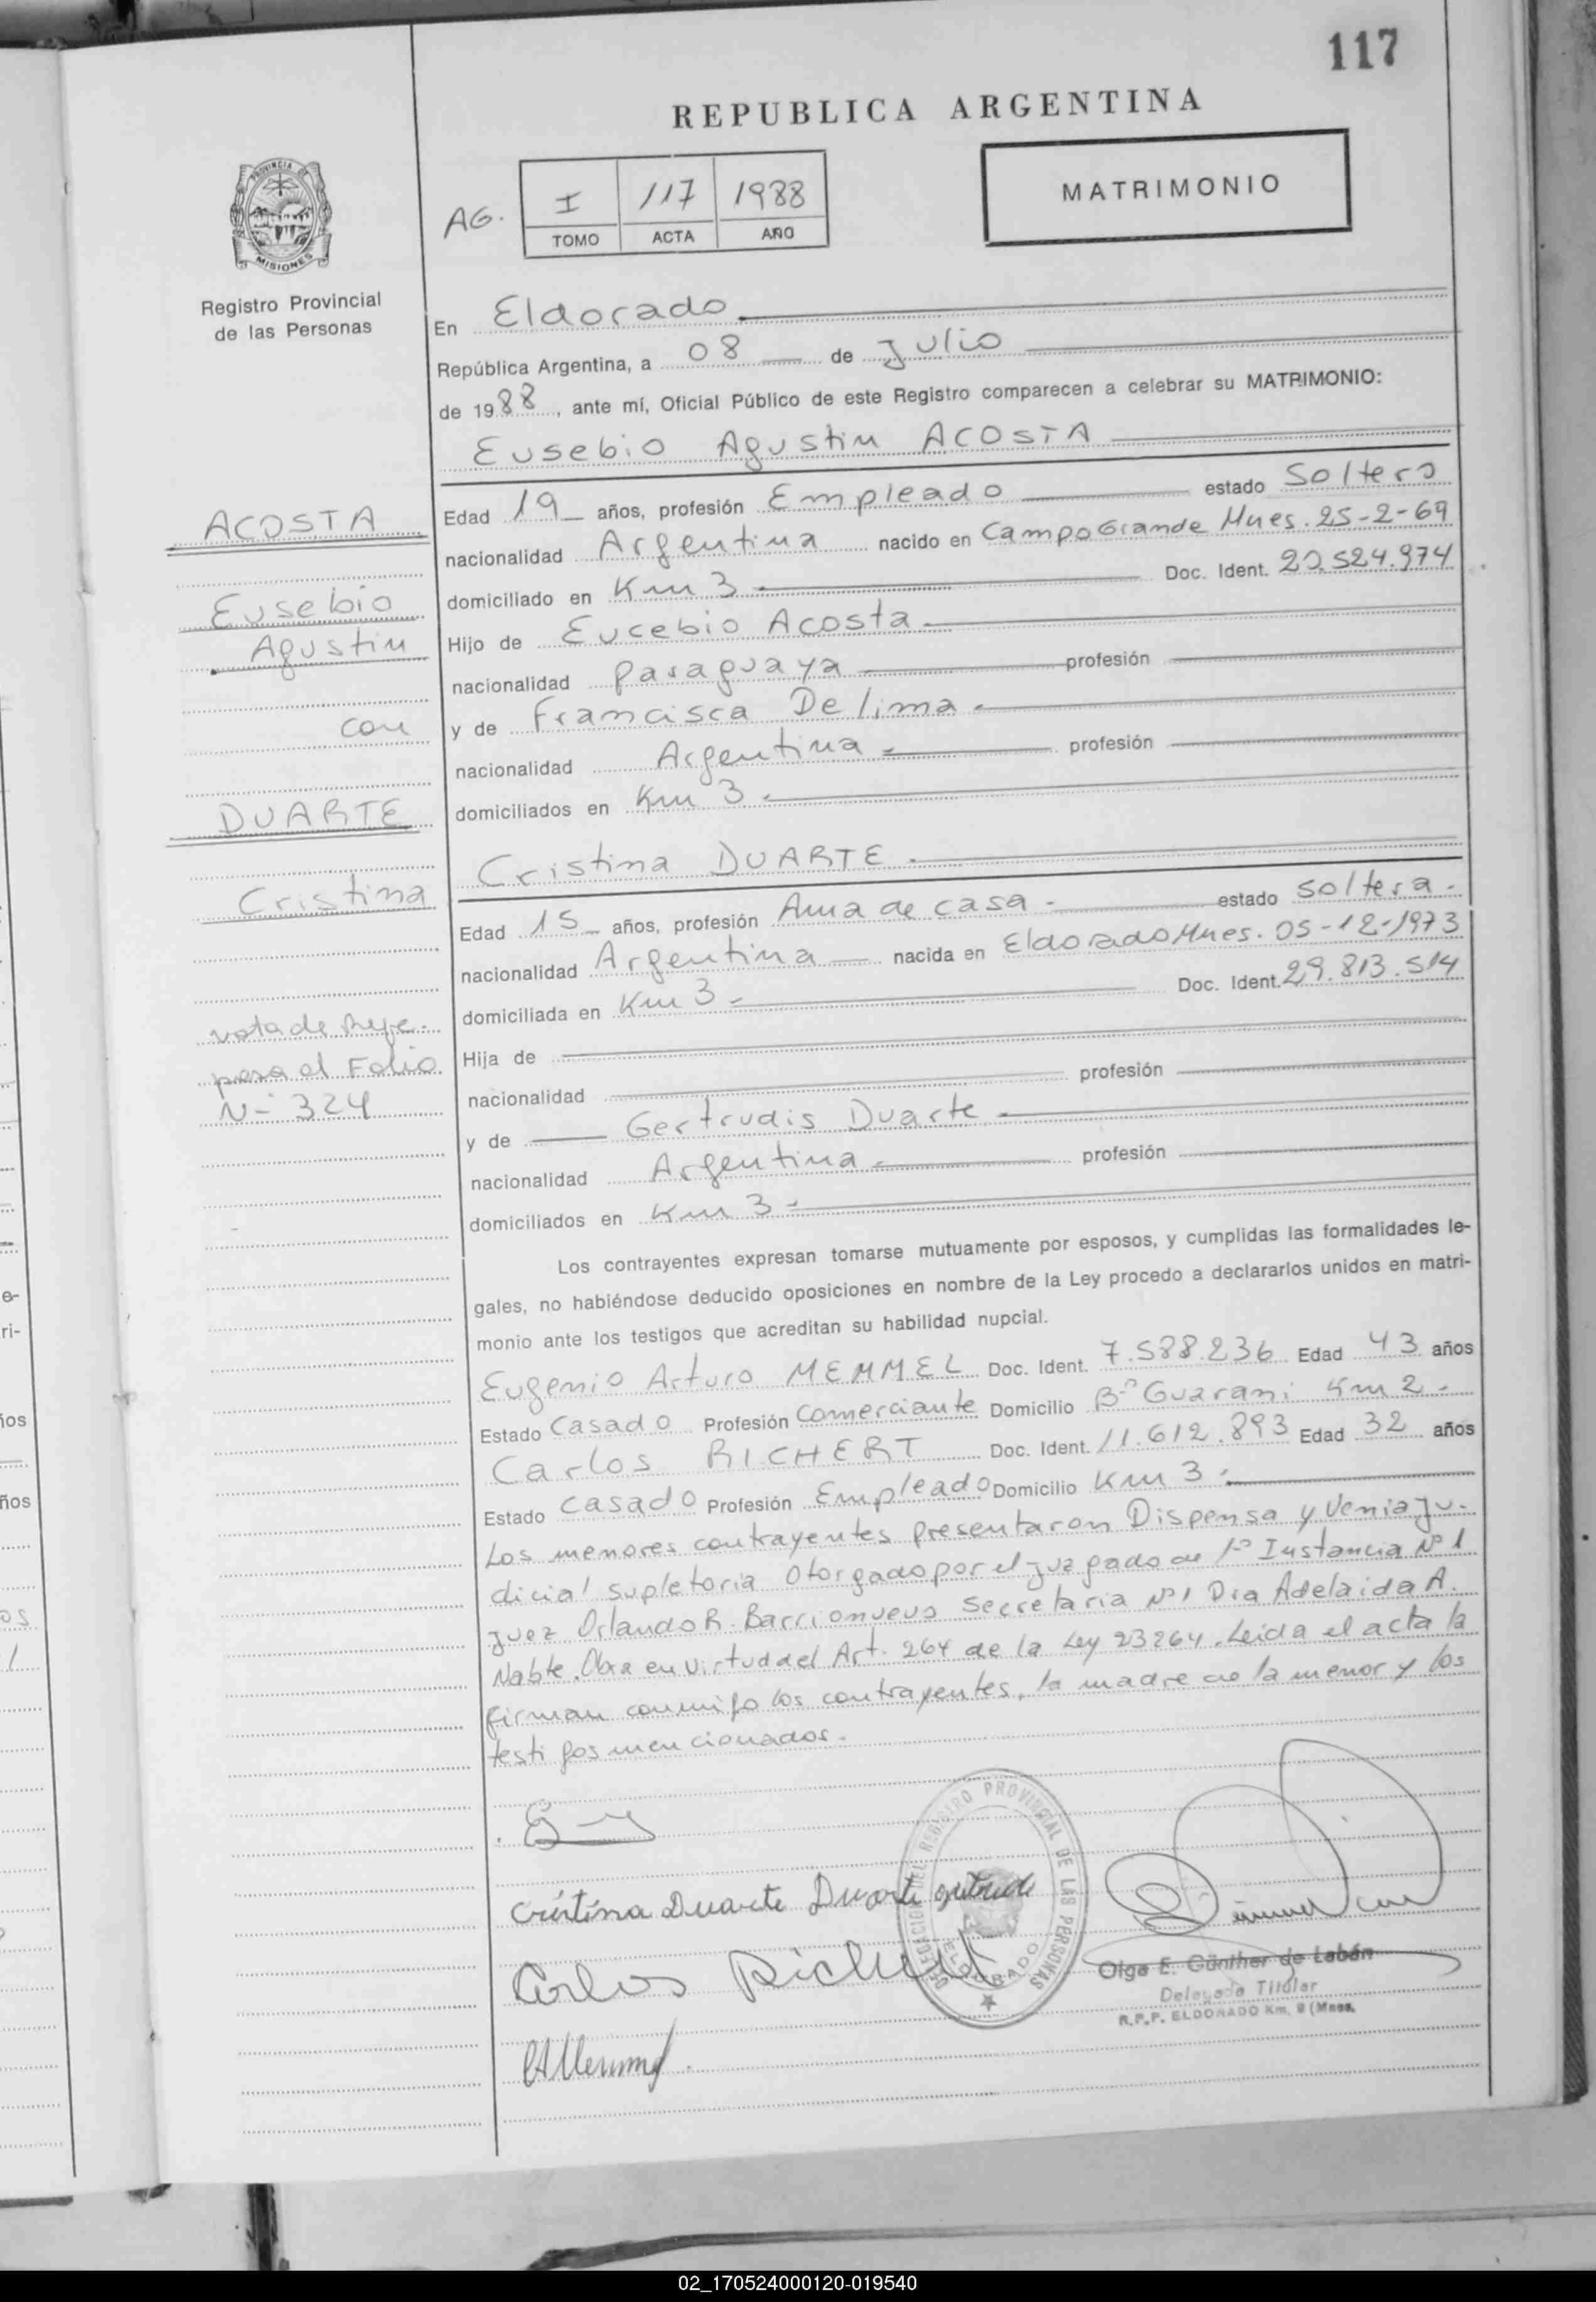 117
REPUBLICA ARGENTINA
PROVINCIA DE
MISIONES
Registro Provincial
de las Personas
AG.
I 117 1988
TOMO ACTA AÑO
MATRIMONIO
En Eldorado
República Argentina, a 08 de Julio
de 1988, ante mí, Oficial Público de este Registro comparecen a celebrar su MATRIMONIO:
Eusebio Agustin ACOSTA
Edad 19 años, profesión Empleado estado Soltero
nacionalidad Argentina nacido en Campo Grande Mnes. 25-2-69
domiciliado en Km 3 Doc. Ident. 20.524.974
Hijo de Eucebio Acosta
nacionalidad paraguaya profesión
y de Francisca De lima
nacionalidad Argentina profesión
domiciliados en Km 3
Cristina DUARTE
Edad 15 años, profesión Ama de casa estado Soltera
nacionalidad Argentina nacida en Eldorado Mnes. 05-12-1973
domiciliada en Km 3 Doc. Ident. 29.813.514
Hija de
nacionalidad profesión
y de Gertrudis Duarte
nacionalidad Argentina profesión
domiciliados en Km 3
Los contrayentes expresan tomarse mutuamente por esposos, y cumplidas las formalidades le-
gales, no habiéndose deducido oposiciones en nombre de la Ley procedo a declararlos unidos en matri-
monio ante los testigos que acreditan su habilidad nupcial.
Eugenio Arturo MEMMEL Doc. Ident. 7.588.236 Edad 43 años
Estado Casado Profesión Comerciante Domicilio Bº Guarani Km 2
Carlos RICHERT Doc. Ident. 11.612.893 Edad 32 años
Estado Casado Profesión Empleado Domicilio Km 3
Los menores contrayentes presentaron Dispensa y Venia Ju-
dicial supletoria Otorgado por el juzgado de 1º Instancia Nº 1
Juez Orlando R. Barrionuevo Secretaria Nº 1 Dra Adelaida A.
Nabte. Obra en virtud del Art. 264 de la Ley 23264. Leida el acta la
firman conmigo los contrayentes, la madre de la menor y los
testigos mencionados.
ACOSTA
Eusebio
Agustin
con
DUARTE
Cristina
nota de Refe.
pasa al Folio
N- 324
Cristina Duarte Duarte
Carlos Richert
DELEGACION DEL REGISTRO PROVINCIAL DE LAS PERSONAS
ELDORADO
Olga E. Günther de Labán
Delegada Titular
R.P.P. ELDORADO Km. 9 (Mnes.
02_170524000120-019540